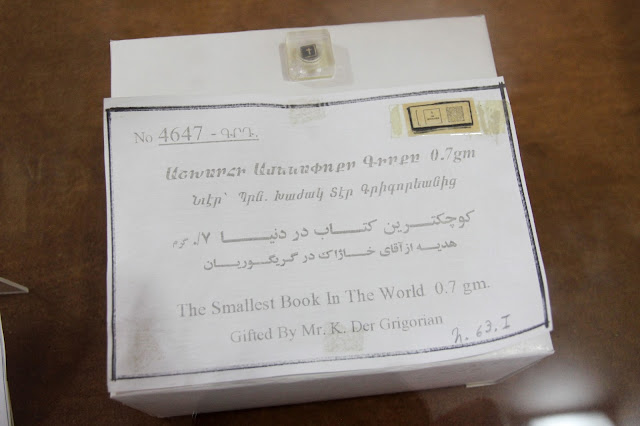 No 4647 - ԳՐԴ.
Աշխարհի Ամենափոքր Գիրքը 0.7gm
Նուէր՝ Պրն. Խաժակ Տէր Գրիգորեանից
کوچکترین کتاب در دنیا ۷/. گرم
هدیه از آقای خاژاک در گریگوریان
The Smallest Book In The World 0.7 gm.
Gifted By Mr. K. Der Grigorian
Դ. 63. I